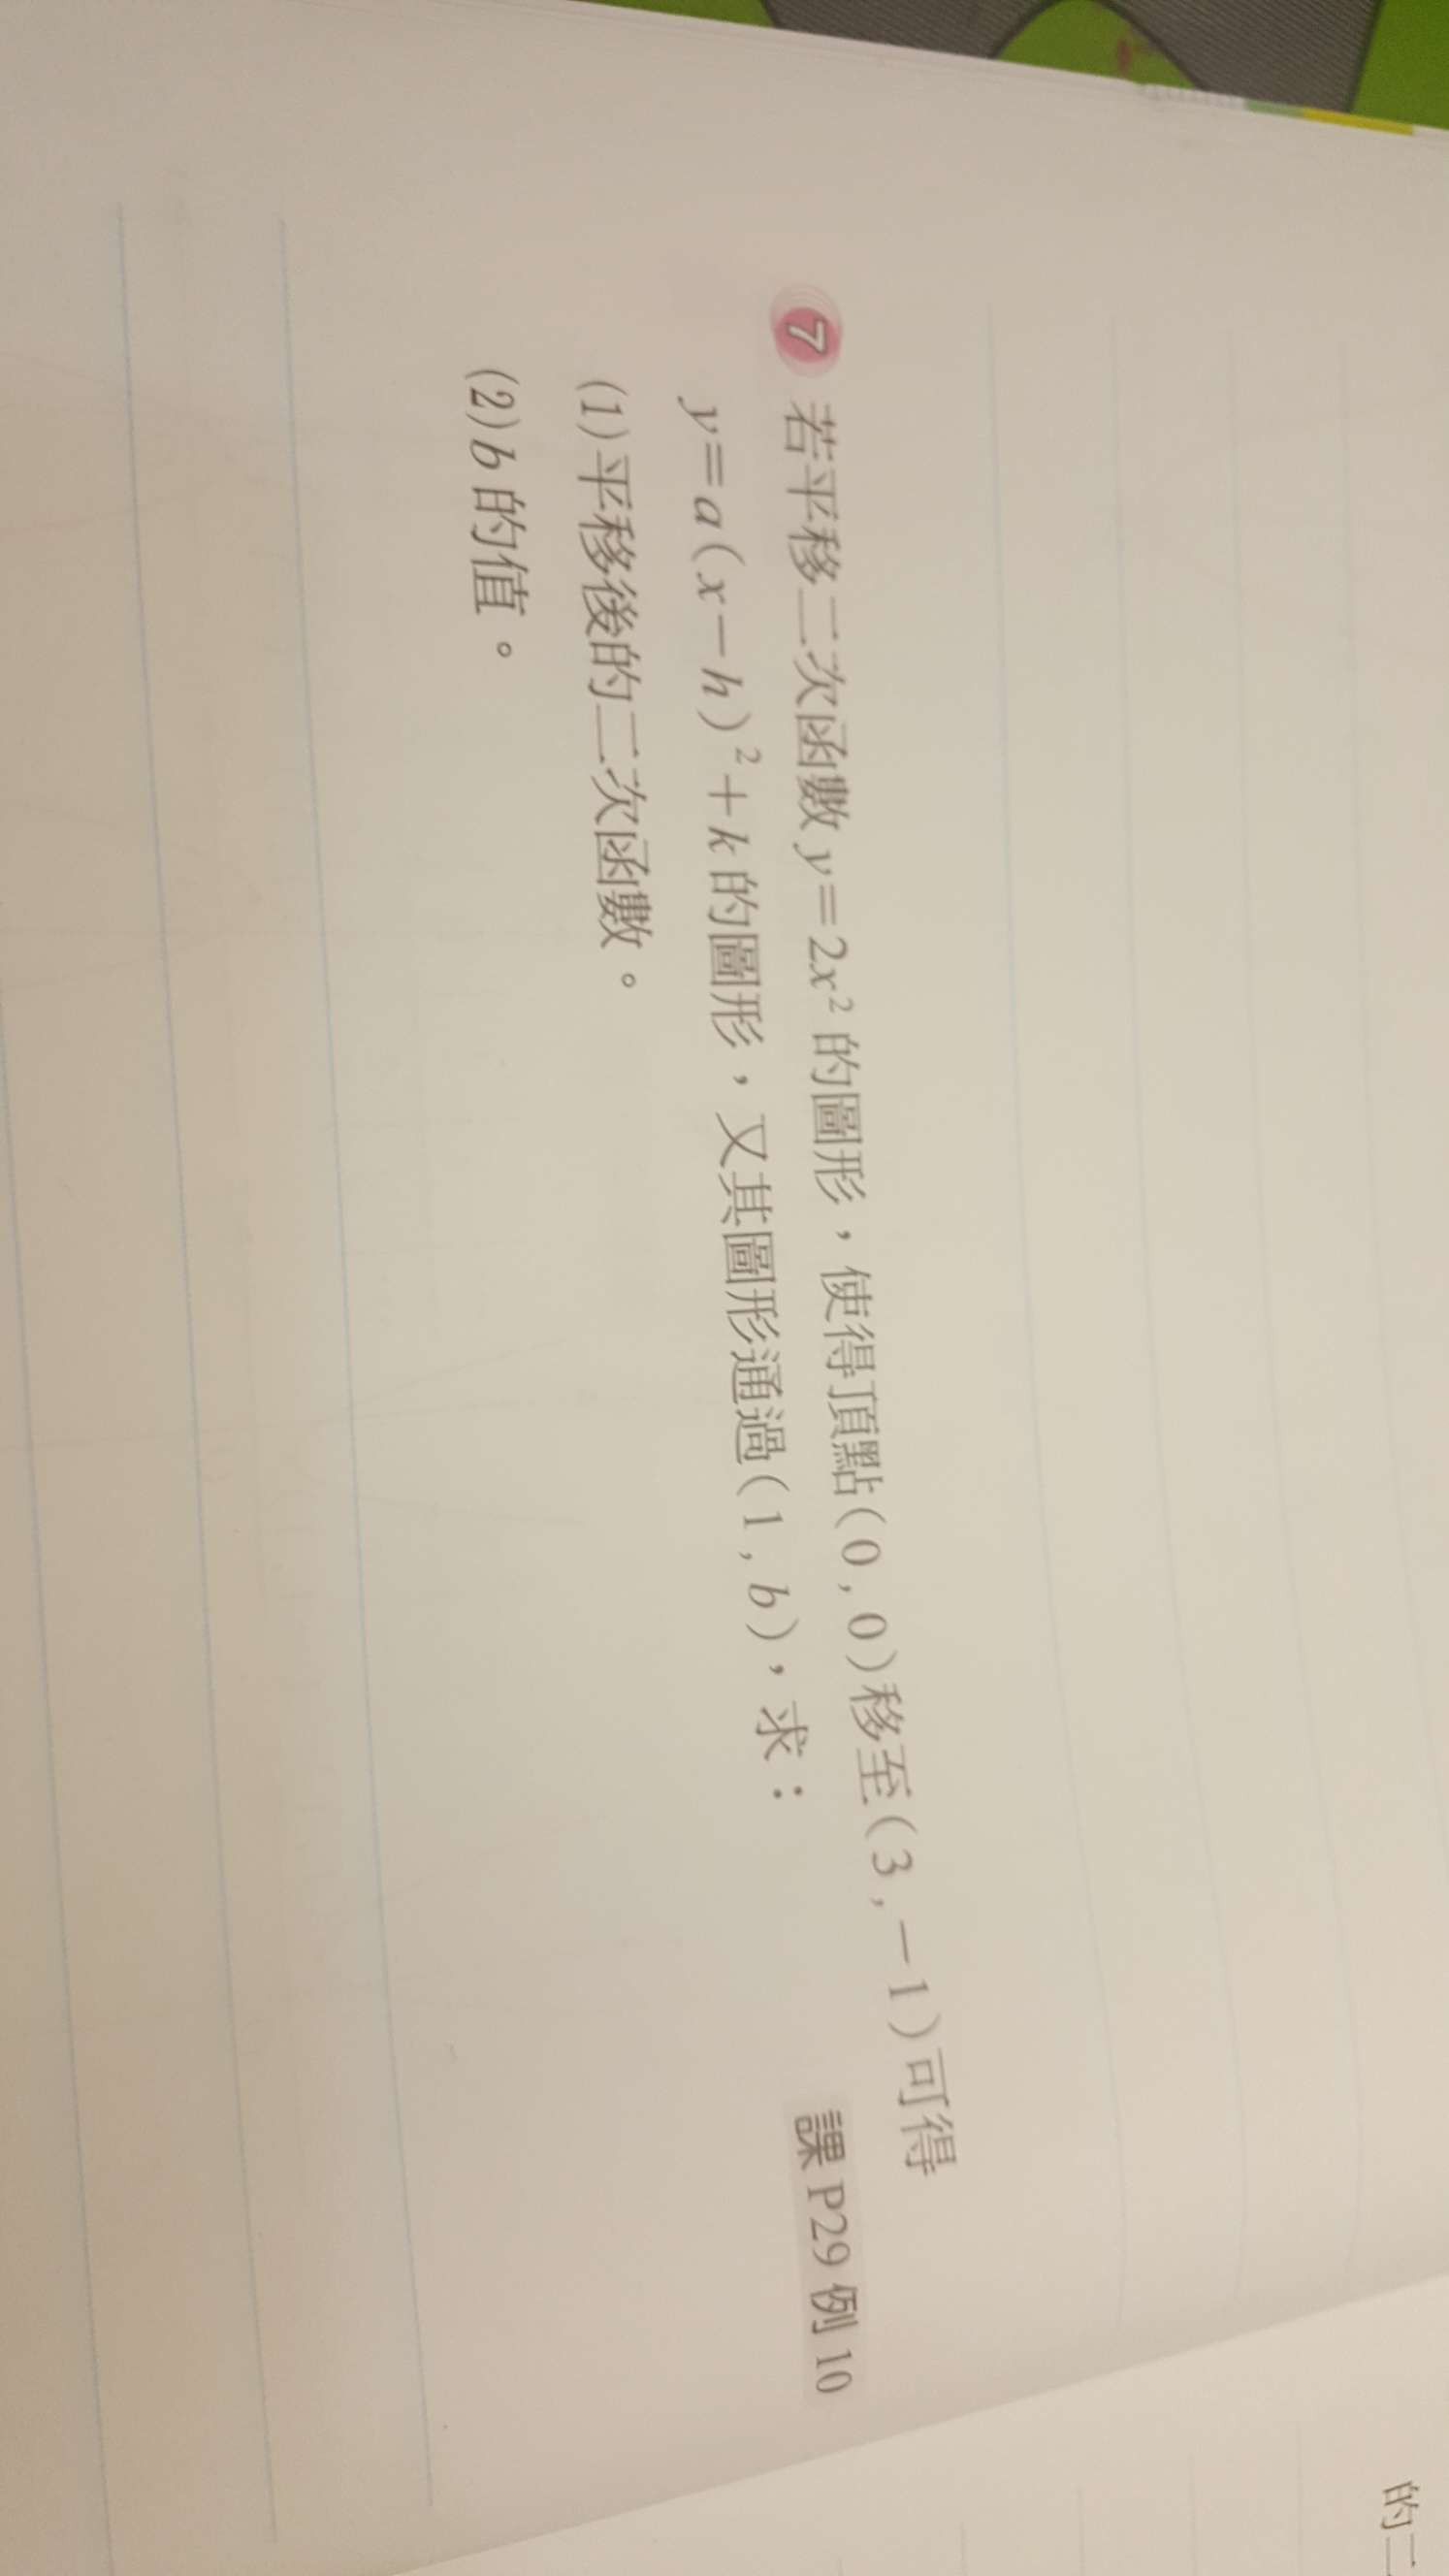 7 若平移二次函數 y=2x² 的圖形，使得頂點(0,0)移至(3,-1)可得
y=a(x-h)²+k 的圖形，又其圖形通過(1,b)，求：
課 P29 例 10
(1)平移後的二次函數。
(2)b 的值。
的二